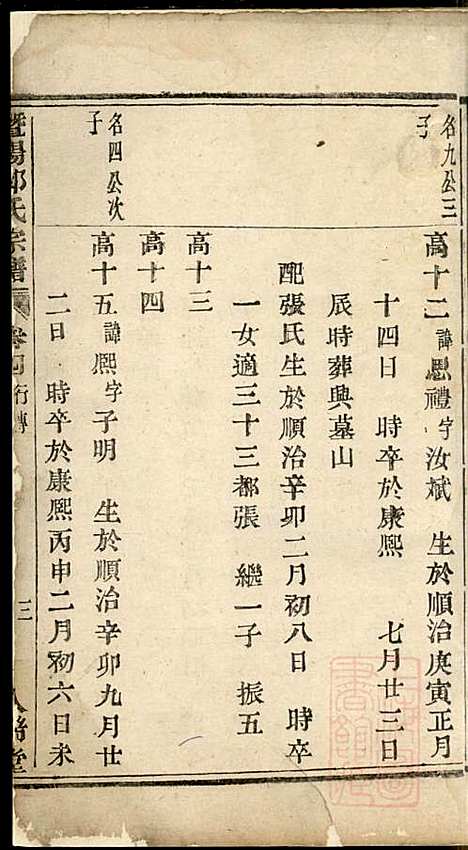 名九公三
子
高十二 諱思禮字汝斌 生於順治庚寅正月
十四日 時卒於康熙 七月廿三日
辰時葬興墓山
配張氏生於順治辛卯二月初八日 時卒
一女適三十三都張 繼一子 振五
高十三
高十四
名四公次
子
高十五 諱熙字子明 生於順治辛卯九月廿
二日 時卒於康熙丙申二月初六日未
暨陽郭氏宗譜 卷四 行傳 三